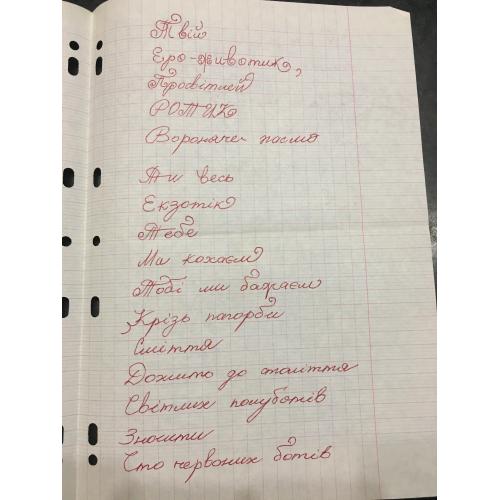 Твій
Еро-животик,
Просвітлей
РОТИК
Вороняче пасмо
Ти весь
Екзотік
Тебе
Ми кохаєм
Тобі ми бажаєм
Крізь пагорби
Сміття
Дожить до століття
Світлих полуботів
Зносити
Сто червоних ботів